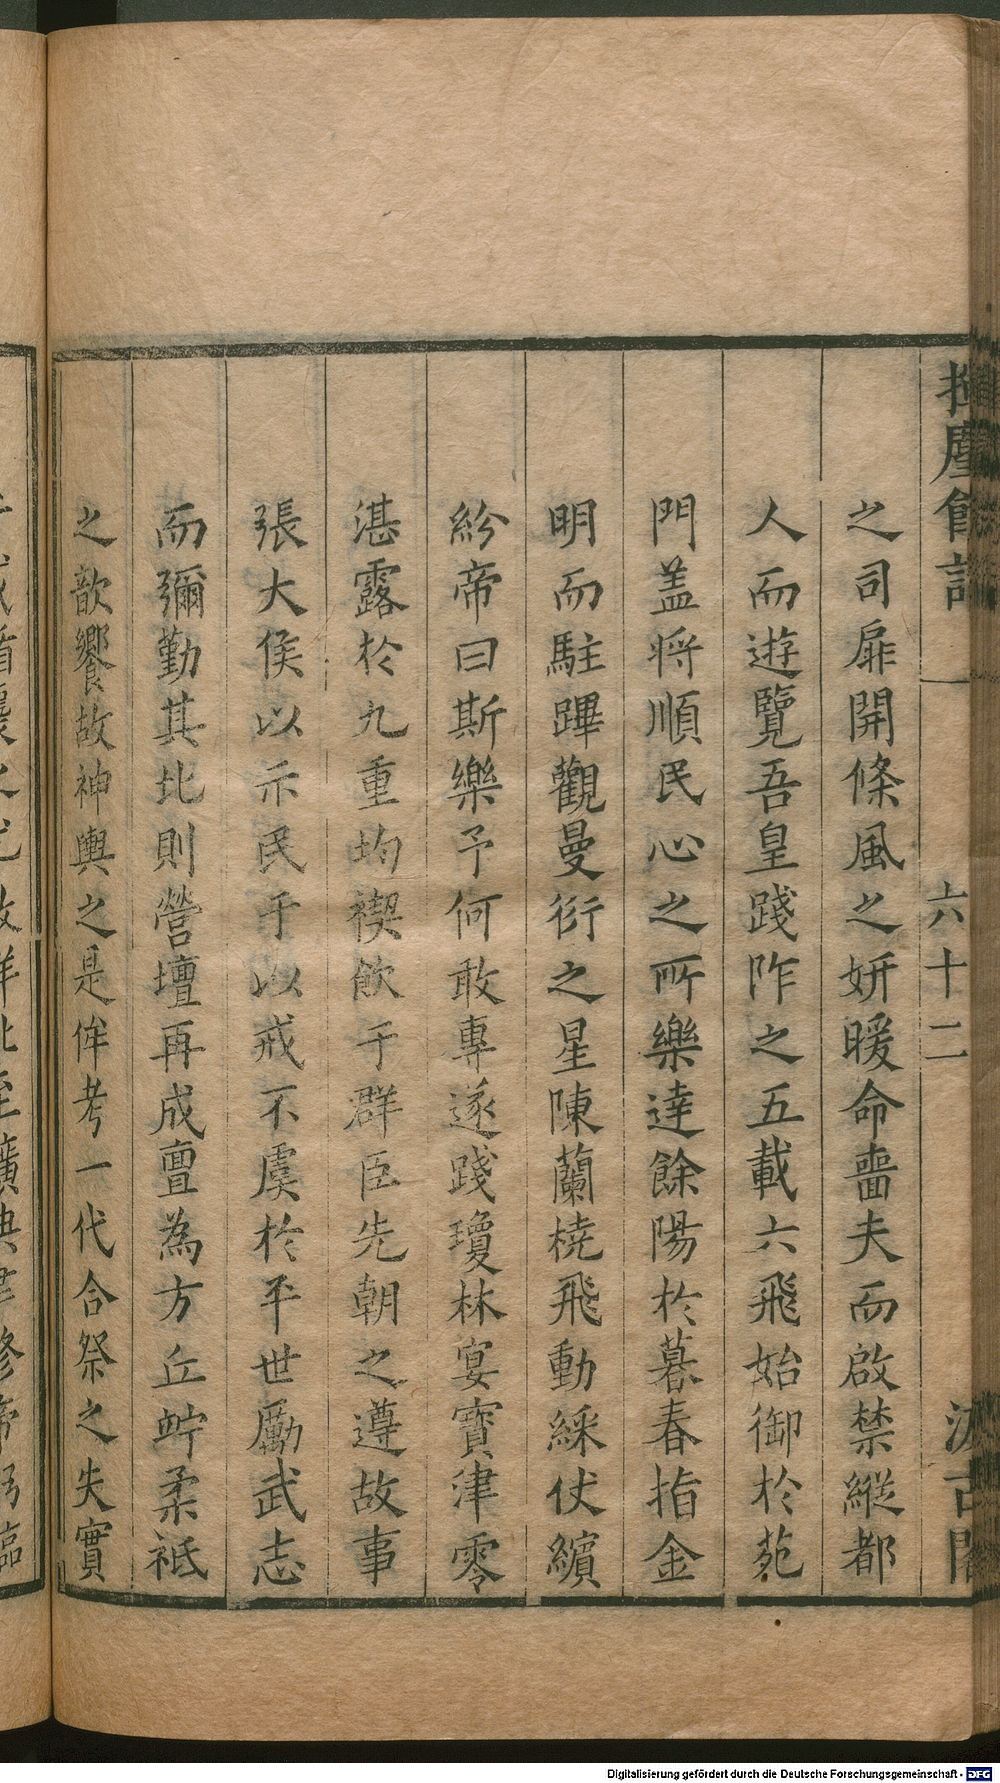 塵餘話
一
六十二
汲古閣
之司扉開條風之妍暖命嗇夫而啟禁縱都
人而遊覽吾皇踐阼之五載六飛始御於苑
門盖将順民心之所樂達餘陽於暮春指金
明而駐蹕觀曼衍之星陳蘭橈飛動綵仗繽
紛帝曰斯樂予何敢專遂踐瓊林宴寶津零
湛露於九重均禊飲于群臣先朝之遵故事
張大侯以示民于以戒不虞於平世勵武志
而彌勤其北則營壇再成亶為方丘竚柔祗
之歆饗故神輿之是侔考一代合祭之失實
Digitalisierung gefördert durch die Deutsche Forschungsgemeinschaft - DFG